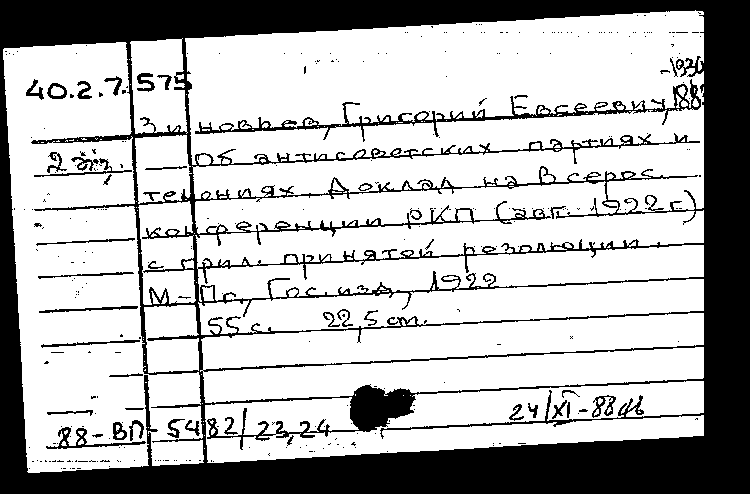 40.2.7.575
-1936
Зиновьев, Григорий Евсеевич, 1883
2 экз. Об антисоветских партиях и
течениях. Доклад на Всерос.
конференции РКП (авг. 1922 г.)
с прил. принятой резолюции.
М.-Пг., Гос. изд., 1922
55 с. 22,5 cm.
88-ВП-5482/23,24
24/XI-88